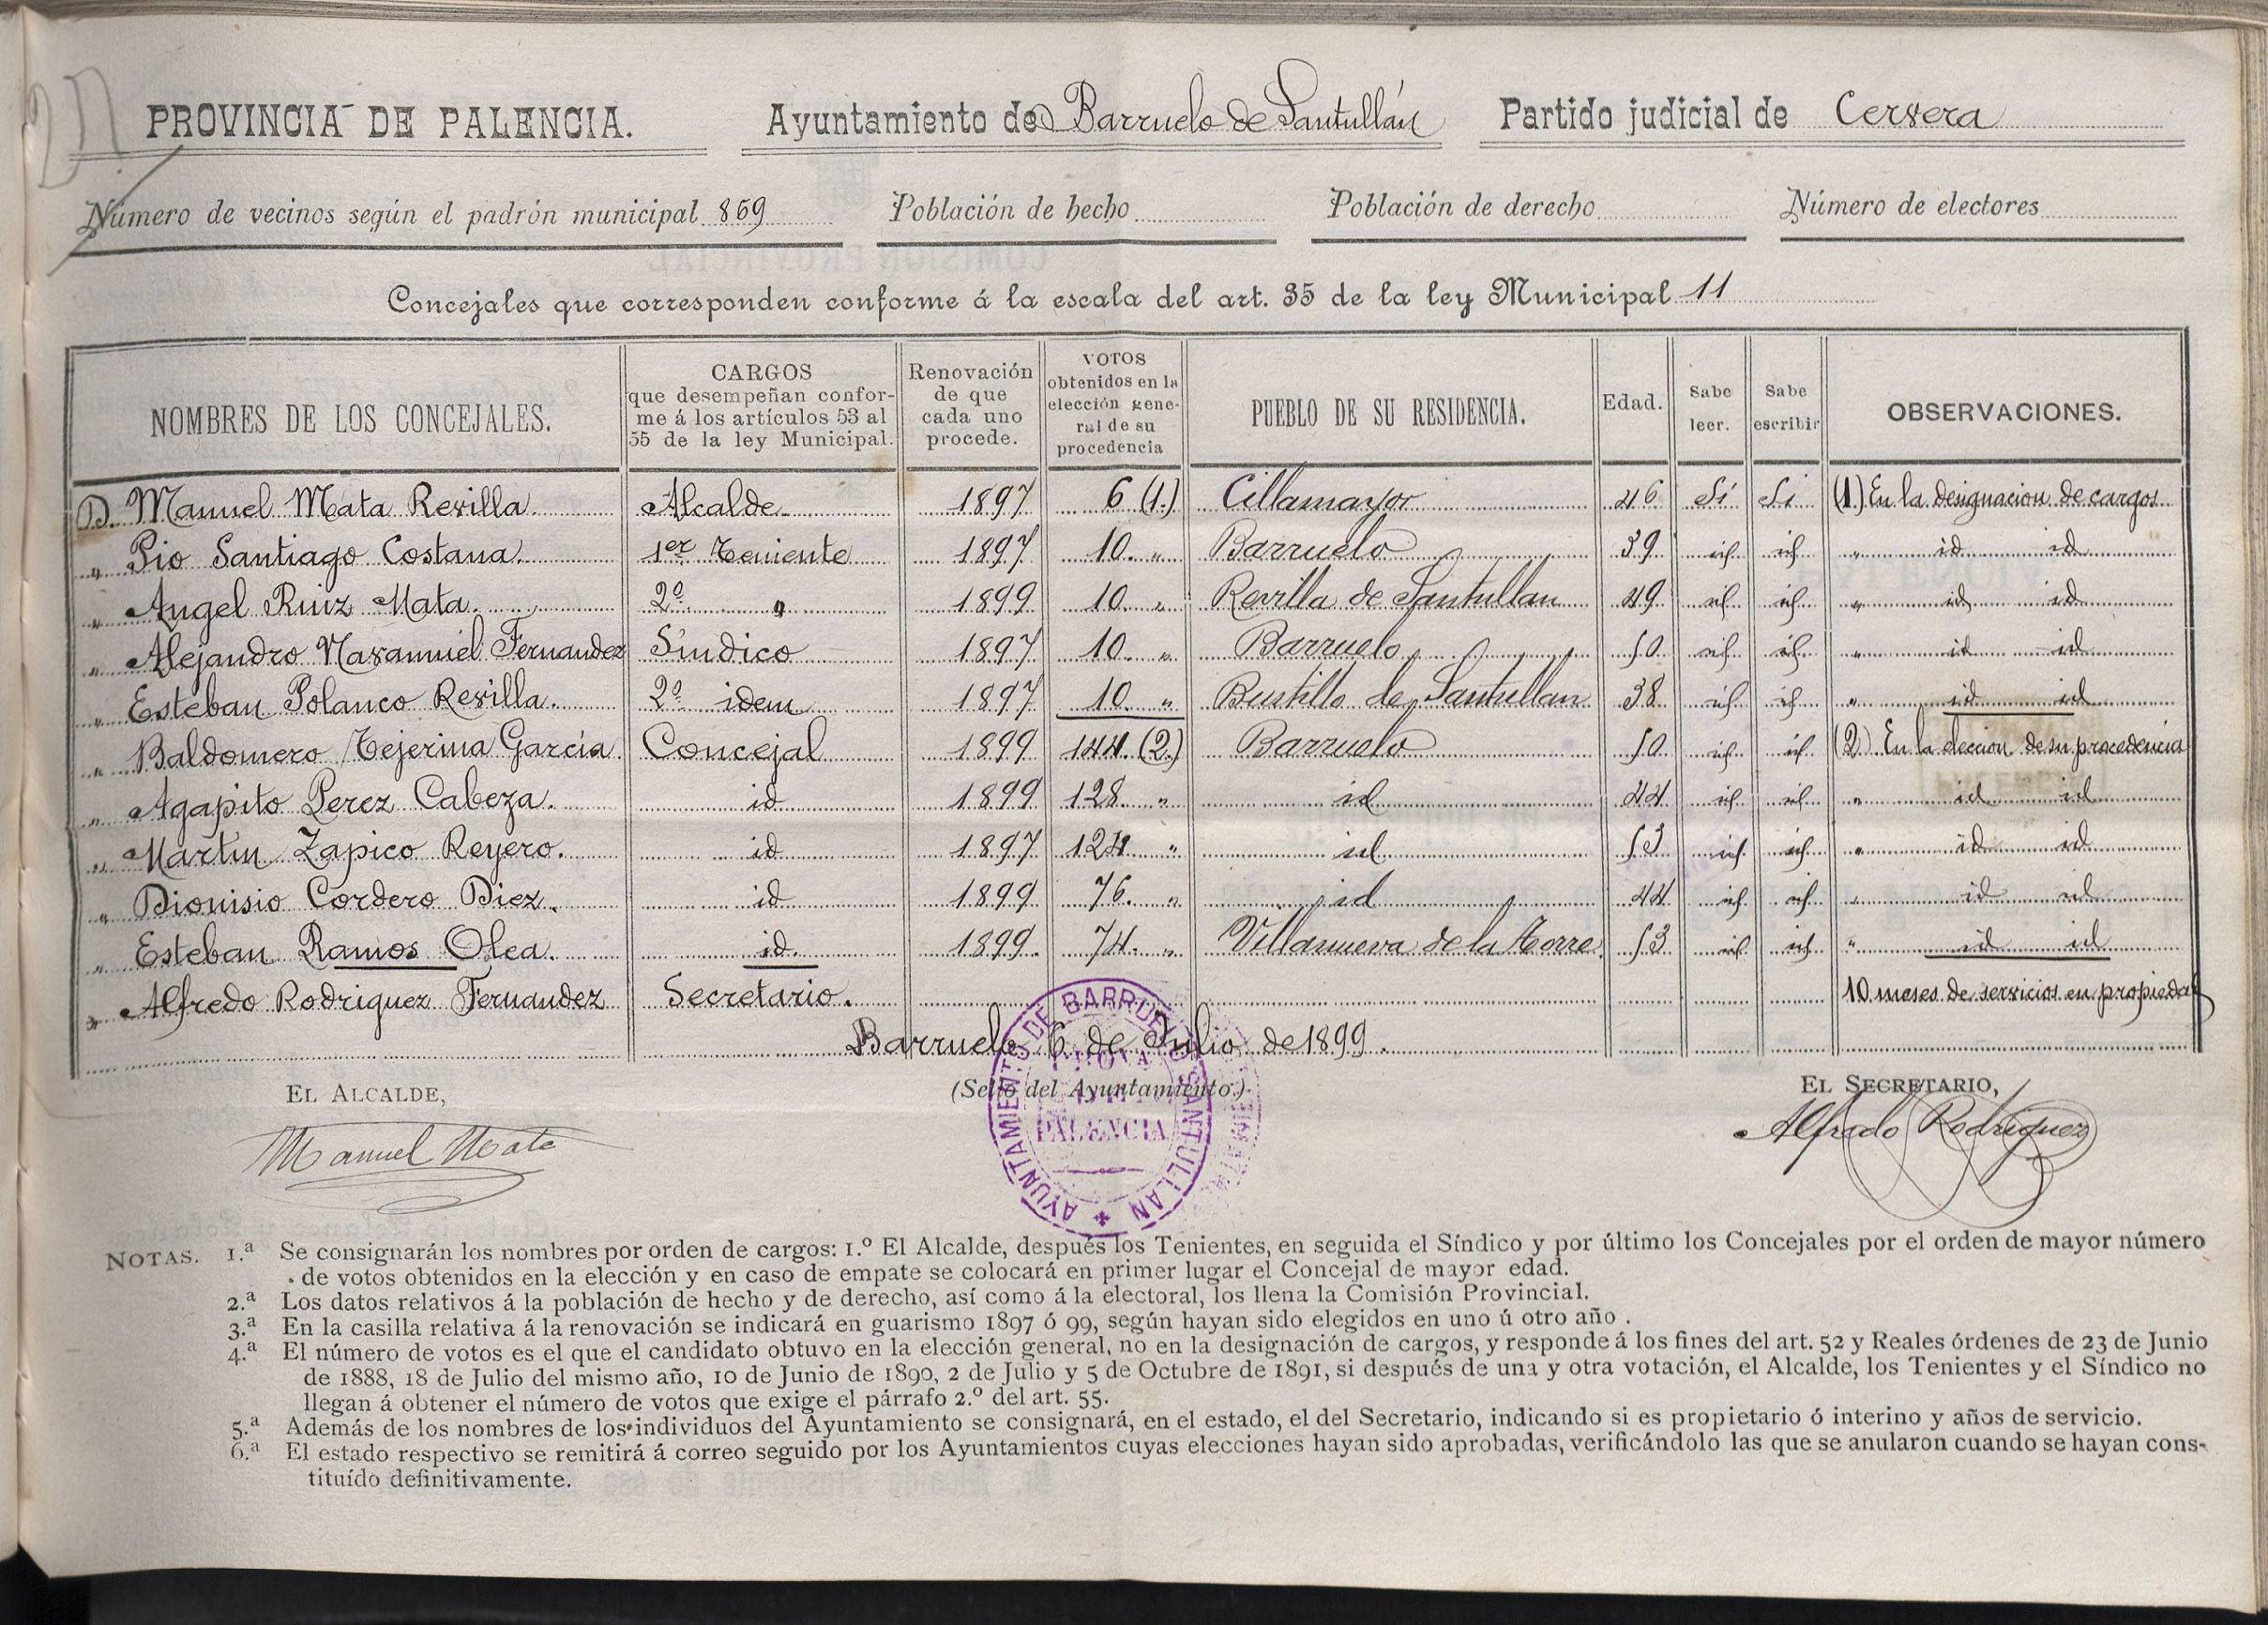 PROVINCIA DE PALENCIA. Ayuntamiento de Barruelo de Santullán Partido judicial de Cervera
Número de vecinos según el padrón municipal 869 Población de hecho Población de derecho Número de electores
Concejales que corresponden conforme á la escala del art. 35 de la ley Municipal 11
NOMBRES DE LOS CONCEJALES. CARGOS que desempeñan conforme á los artículos 53 al 55 de la ley Municipal. Renovación de que cada uno procede. VOTOS obtenidos en la elección general de su procedencia PUEBLO DE SU RESIDENCIA. Edad. Sabe leer. Sabe escribir OBSERVACIONES.
D. Manuel Mata Revilla. Alcalde 1897 6 (1.) Cillamayor 46 Sí Si (1.) En la designacion de cargos
" Pio Santiago Costana. 1er Teniente 1897 10 " Barruelo 39 id id " id id
" Angel Ruiz Mata. 2º " 1899 10 " Revilla de Santullan 49 id id " id id
" Alejandro Navamuel Fernandez Síndico 1897 10 " Barruelo 50 id id " id id
" Esteban Polanco Revilla. 2º idem 1897 10 " Bustillo de Santullan 38 id id " id id
" Baldomero Tejerina García Concejal 1899 144 (2.) Barruelo 50 id id (2.) En la eleccion de su procedencia
" Agapito Perez Cabeza. id 1899 128 " id 44 id id " id id
" Martin Zapico Reyero. id 1897 124 " id 53 id id " id id
" Dionisio Cordero Diez. id 1899 76. " id 44 id id " id id
" Esteban Ramos Olea. id. 1899. 74. " Villanueva de la Torre 53 id id " id id
" Alfredo Rodriguez Fernandez Secretario. 10 meses de servicios en propiedad
Barruelo 6 de Julio de 1899.
EL ALCALDE, (Sello del Ayuntamiento.) EL SECRETARIO,
AYUNTAMIENTO DE BARRUELO SANTULLAN
PALENCIA
Manuel Mata Alfredo Rodriguez
NOTAS. 1.ª Se consignarán los nombres por orden de cargos: 1.º El Alcalde, después los Tenientes, en seguida el Síndico y por último los Concejales por el orden de mayor número
de votos obtenidos en la elección y en caso de empate se colocará en primer lugar el Concejal de mayor edad.
2.ª Los datos relativos á la población de hecho y de derecho, así como á la electoral, los llena la Comisión Provincial.
3.ª En la casilla relativa á la renovación se indicará en guarismo 1897 ó 99, según hayan sido elegidos en uno ú otro año.
4.ª El número de votos es el que el candidato obtuvo en la elección general, no en la designación de cargos, y responde á los fines del art. 52 y Reales órdenes de 23 de Junio
de 1888, 18 de Julio del mismo año, 10 de Junio de 1890, 2 de Julio y 5 de Octubre de 1891, si después de una y otra votación, el Alcalde, los Tenientes y el Síndico no
llegan á obtener el número de votos que exige el párrafo 2.º del art. 55.
5.ª Además de los nombres de los individuos del Ayuntamiento se consignará, en el estado, el del Secretario, indicando si es propietario ó interino y años de servicio.
6.ª El estado respectivo se remitirá á correo seguido por los Ayuntamientos cuyas elecciones hayan sido aprobadas, verificándolo las que se anularon cuando se hayan cons-
tituído definitivamente.